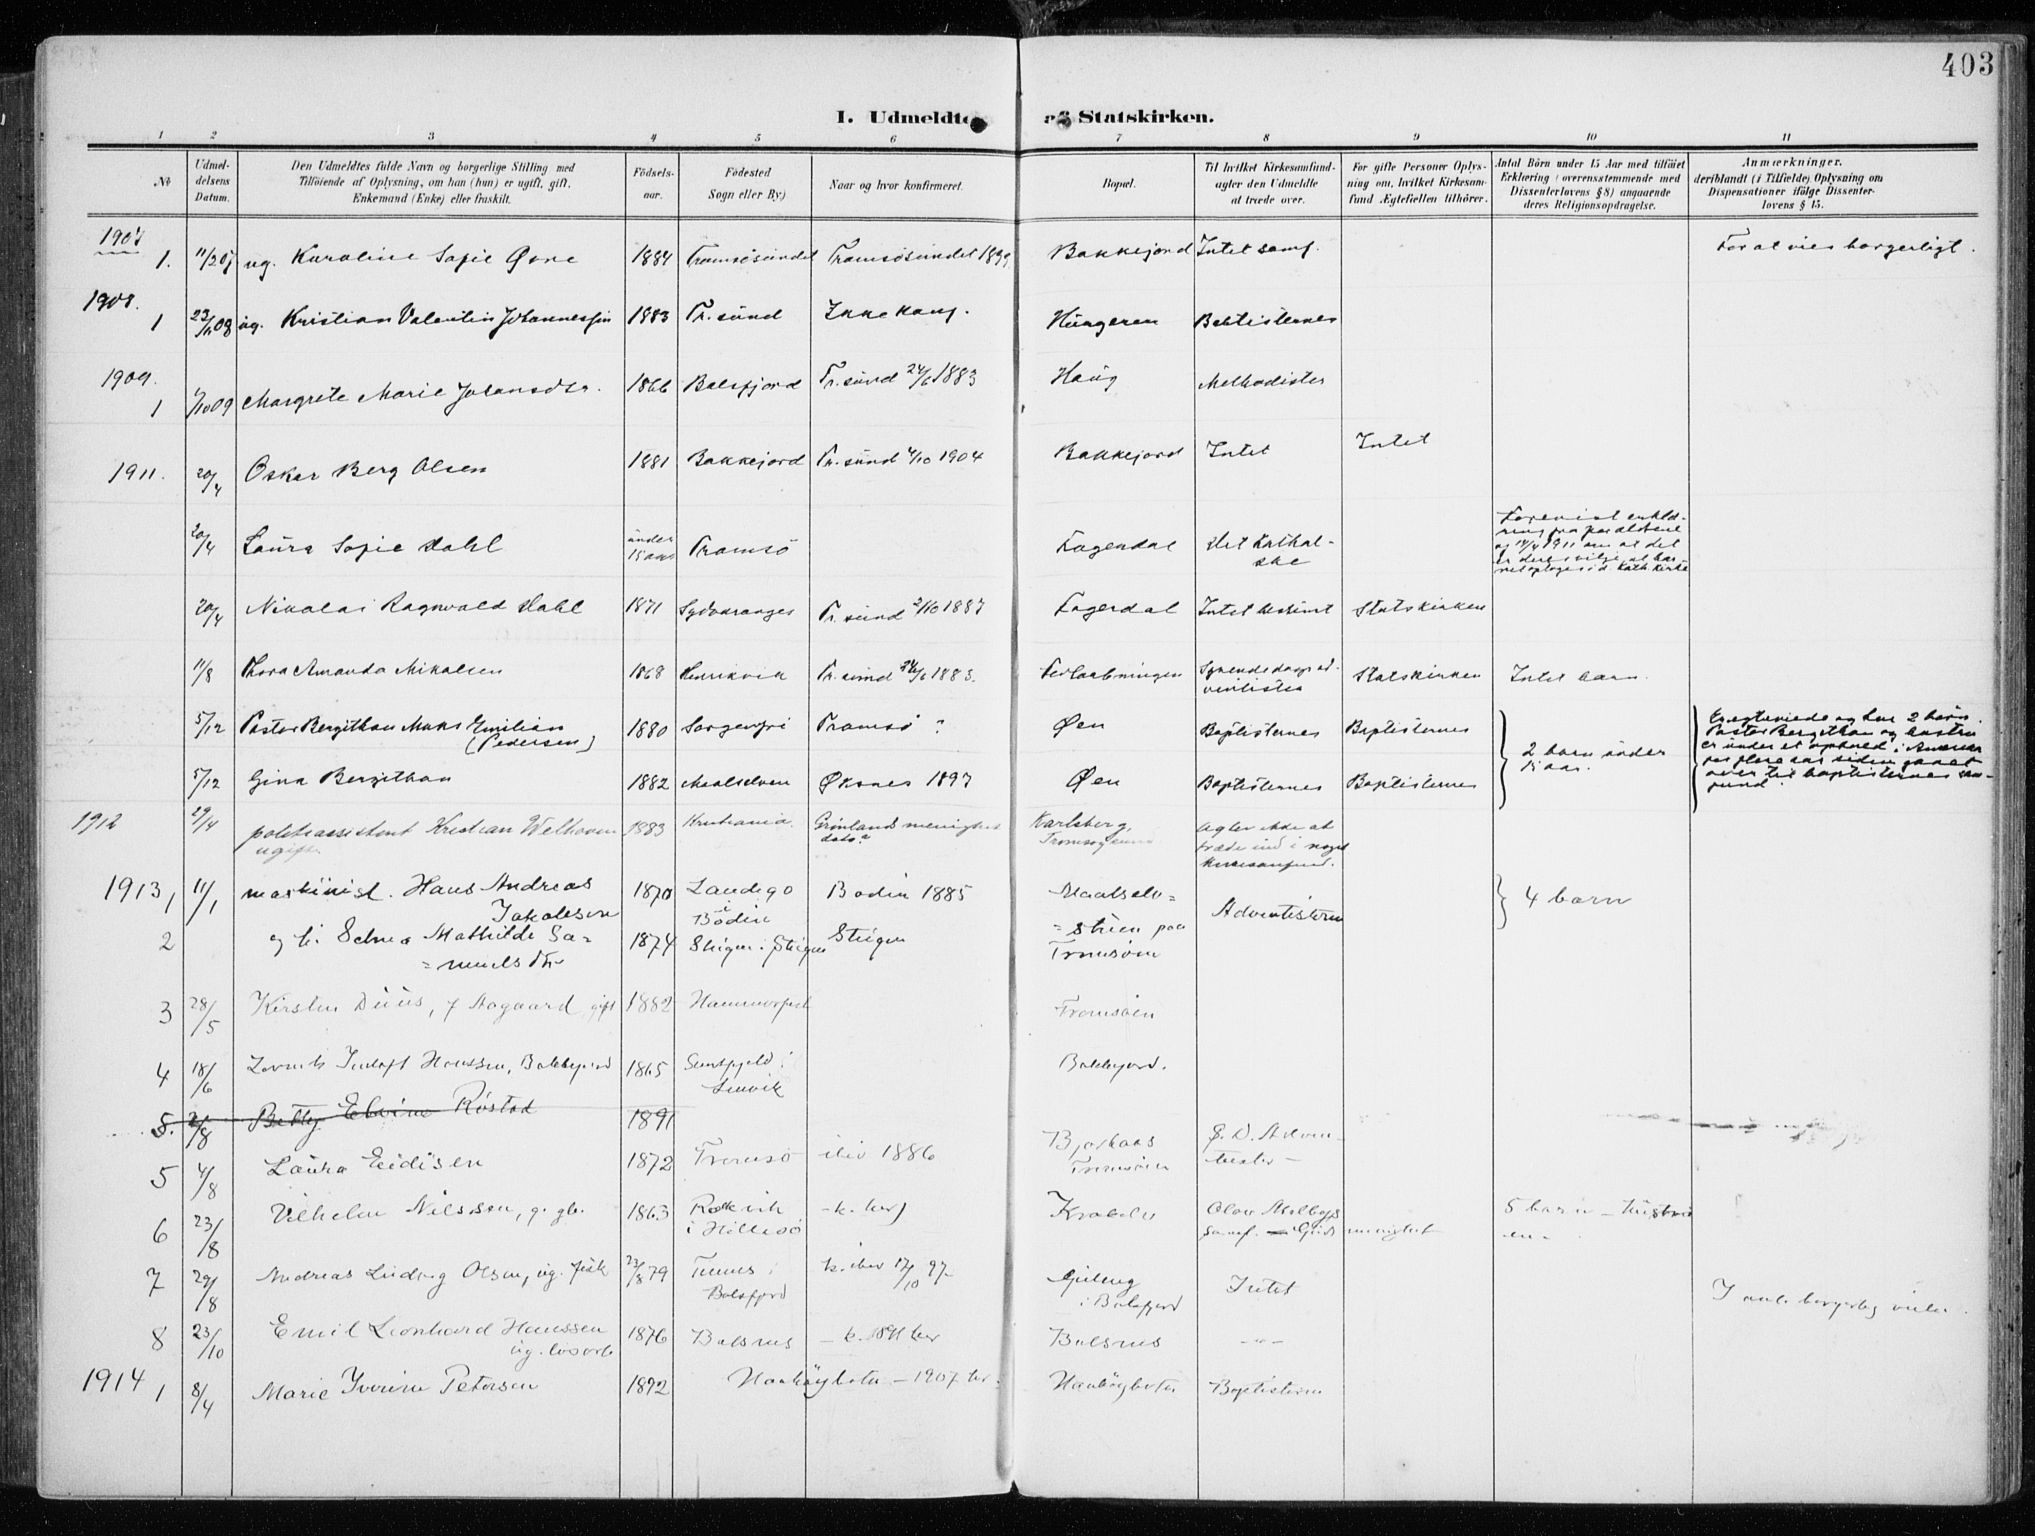 403
I. Udmeldte af Statskirken.
1 2 3 4 5 6 7 8 9 10 11
№
Udmel-
delsens
Datum.
Den Udmeldtes fulde Navn og borgerlige Stilling med
Tilföiende af Oplysning, om han (hun) er ugift, gift,
Enkemand (Enke) eller fraskilt.
Födsels-
aar.
Födested
Sogn eller By)
Naar og hvor konfirmeret.
Bopæl.
Til hvilket Kirkesamfund-
agter den Udmeldte
at træde over.
For gifte Personer Oplys-
ning om, hvilket Kirkesam-
fund Ægtefællen tilhörer.
Antal Börn under 15 Aar med tilföiet
Erklæring (overensstemmende med
Dissenterlovens § 8) angaaende
deres Religionsopdragelse.
Anmærkninger.
deriblandt (i Tilfælde) Oplysning om
Dispensationer ifölge Dissenter-
lovens § 15.
1907
1. 11/2 07 ug. Karoline Sofie 1884 Tromsösundet Tromsösundet 1899 Bakkejord Intet samf. For at vies borgerligt.
1908.
1 23/11 08 ug. Kristian Valentin Johannessen 1883 Tr. sund Ikke konf. Hungeren Babtisternes
1909.
1 1/10 09 Margrete Marie Johansdtr. 1866 Balsfjord Tr. sund 24/6 1883 Haug Methodister
1911. 20/4 Oskar Berg Olsen 1881 Bakkejord Tr. sund 2/10 1904 Bakkejord Intet Intet
20/4 Laura Sofie Dahl under
15 aar Tromsö Fagerdal Det Kathol-
ske
20/4 Nikolai Ragnvald Dahl 1871 Sydvaranger Tr. sund 2/10 1887 Fagerdal Intet bestemt Statskirken
11/8 Thora Amanda Mikalsen 1868 Henrikvik Tr. sund 24/6 1883. Syvendedags ad-
ventister Statskirken Intet barn.
5/12 Pastor Bergithon Maks Emilian
(Pedersen) 1880 Sorgenfri Tromsö ? Øen Baptisternes Baptisternes 2 barn under
15 aar.
Egteviede og har 2 børn.
Pastor Bergithon og hustru
er under et ophold i Amerika
for flere aar siden gaaet
over til baptisternes sam-
fund.
5/12 Gina Bergithon 1882 Maalselven Øksnes 1897 Øen Baptisternes Baptisternes
1912 29/4 politiassistent Kristian Welhaven
ugift. 1883 Kristiania. Grönlands menighet
dato? Karlsberg,
Tromsøysund Agter ikke at
træde ind i noget
kirkesamfund.
1913, 11/1 maskinist. Hans Andreas
Jakobsen 1870 Landego
i
Bodin Bodin 1885 Maalselv=
= stuen paa
Tromsöen Adventisterne 4 barn
2 og h. Mathilde Sa=
= muelsdtr 1874 Steigen i Steigen Steigen
3 28/5 Kirsten Duus, f Aagaard gift 1882 Hammerfest Tromsöen
4 18/6 Hanssen, Bakkejord 1865 i
Lenvik Bakkejord.
5. 2/8 Betty Elvine Röstad 1891
5 4/8 Laura Eidisen 1872 Tromsö 1886
Tromsöen S. D. Adven-
tister -
6 23/8 Vilhelm Nilssen, g. 1863
i Hillesö - k. her) Olav
samf. - menighet 5 barn -
7 29/8 Andreas Ludvig Olsen, ug. fisk 23/8 79
Balsfjord k. her 17/10 97-
i Balsfjord Intet I anl. borgerlig vielse.
8 23/10 Emil Leonhard Hanssen
ug. 1876 Balsnes - k. 1891 her Balsnes - " -
1914 1 8/4 Marie Iverine Petersen 1892 Haakøybotn - 1907 her. Haakøybotn Baptisterne